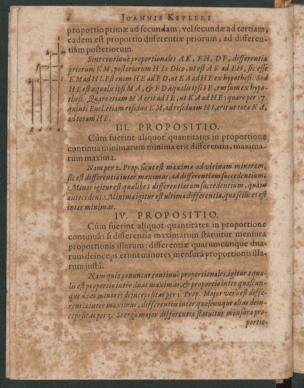 IOANNIS KEPLERI
proportio primæ ad secundam, vel secundæ ad tertiam,
eadem est proportio differentiæ priorum, ad differen-
tiam posteriorum.
Sint continuè proportionales AK, EH, DF, differentia
priorum KM, posteriorum HI. Dico, ut est AK ad EH, sic esse
KM ad HI. Est enim HE ad FD, ut KA ad HE ex hypothesi. Sed
HE est æqualis ipsi MA, & FD æqualis ipsi IE, rursum ex hypo-
thesi. Quare etiam MA erit ad IE, ut KA ad HE: quare per
quinti Euclid. etiam residua KM ad residuam HI, erit ut tota KA,
ad totam HE.
III. PROPOSITIO.
Cùm fuerint aliquot quantitates in proportione
continua minimarum minima erit differentia, maxima-
rum maxima.
Nam per 2. Prop. sicut est maxima ad vicinam minorem,
sic est differentia inter maximas, ad differentiam succedentium.
Minor igitur est qualibet differentiarum succedentium, quàm
antecedens. Minima igitur est ultima differentia, quæ scilicet est
inter minimas.
IV. PROPOSITIO.
Cùm fuerint aliquot quantitates in proportione
continua: si differentia maximarum statuitur mensura
proportionis illarum: differentiæ quarumcunque dua-
rum deinceps erunt minores mensurâ proportionis illa-
rum justâ.
Nam quia ponuntur continuè proportionales, igitur æqua-
lis est proportio inter duas maximas, & proportio inter quascun-
que duas minores deinceps sitas per 1. Prop. Major verò est diffe-
rentia inter maximas, differentia inter quascunque alias dein-
ceps sitas per 3. Si ergò major differentia statuitur mensura pro-
portio-